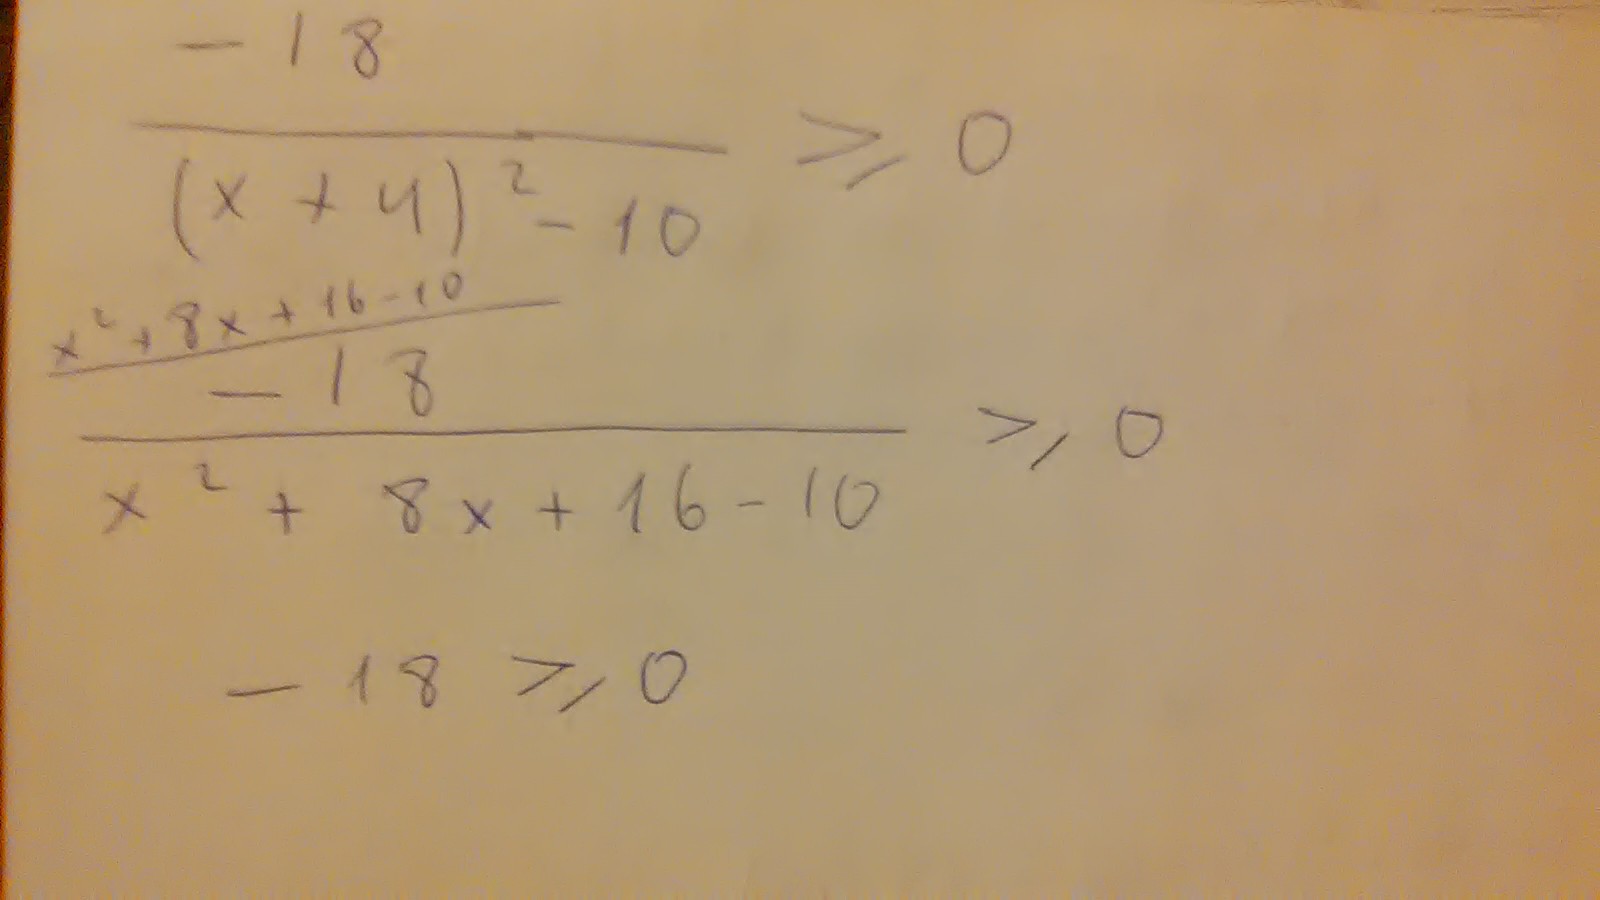 -18
≥ 0
(x + 4)² - 10
x² + 8x + 16 - 10
-18
≥ 0
x² + 8x + 16 - 10
-18 ≥ 0